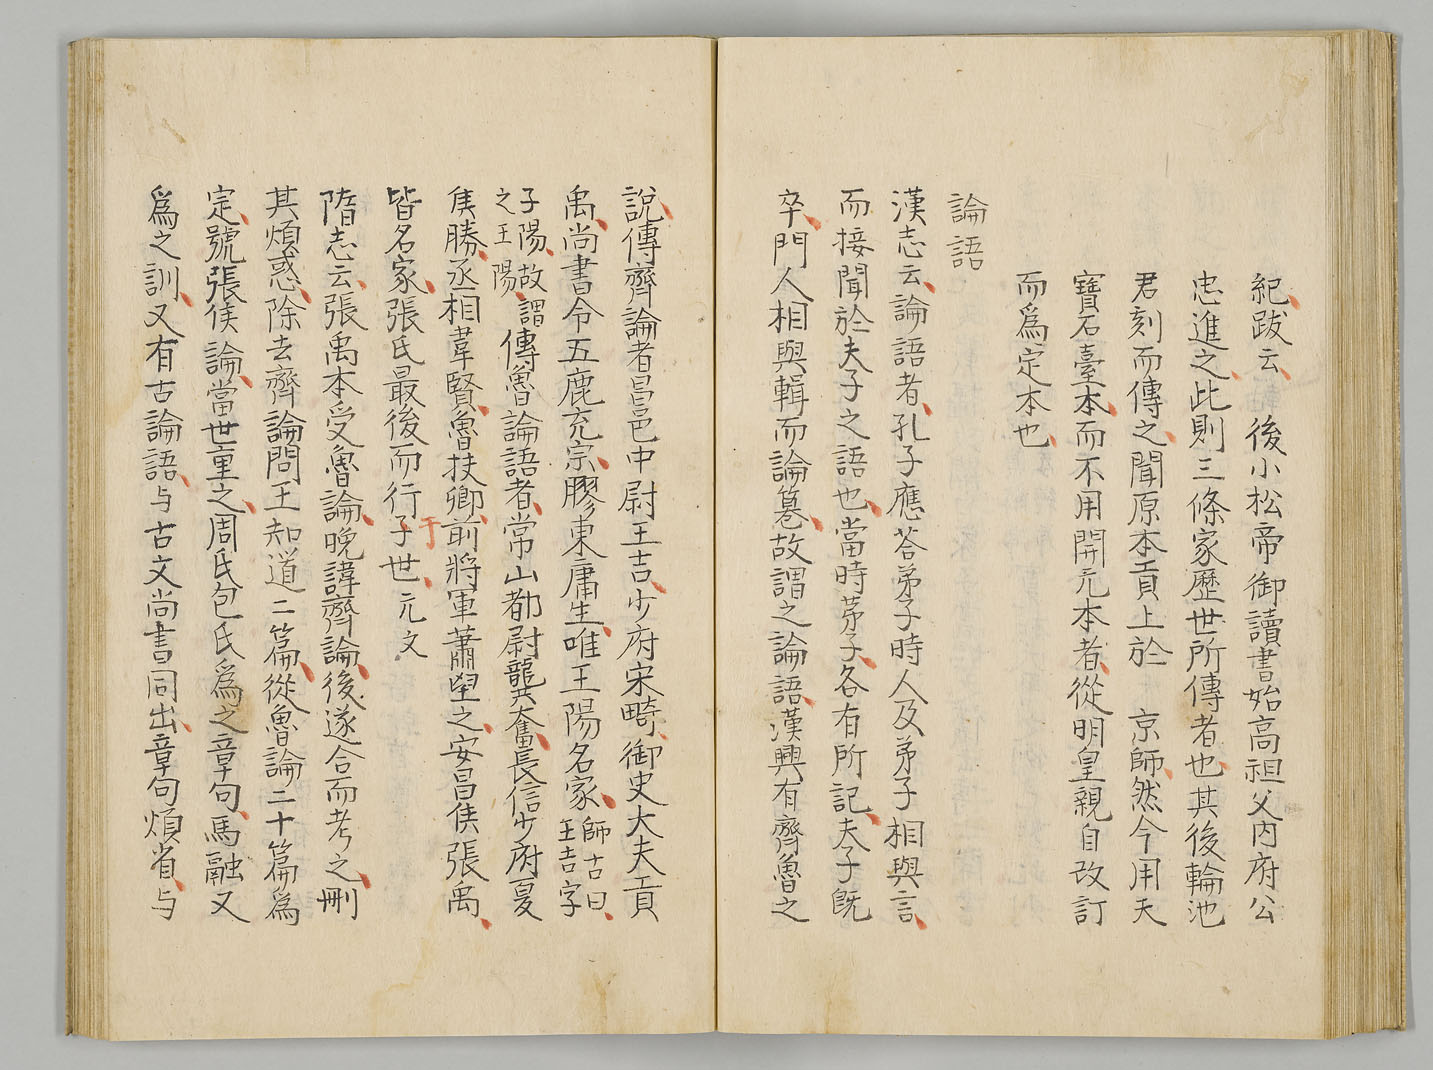 紀跋云後小松帝御讀書始高祖父内府公
忠進之此則三條家歷世所傳者也其後輪池
君刻而傳之聞原本貢上於　京師然今用天
寶石臺本而不用開元本者從明皇親自改訂
而爲定本也
論語
漢志云論語者孔子應答弟子時人及弟子相與言
而接聞於夫子之語也當時弟子各有所記夫子旣
卒門人相與輯而論篹故謂之論語漢興有齊魯之
說傳齊論者昌邑中尉王吉少府宋畸御史大夫貢
禹尚書令五鹿充宗膠東庸生唯王陽名家師古曰王吉字
子陽故謂之王陽傳魯論語者常山都尉龔奮長信少府夏
侯勝丞相韋賢魯扶卿前將軍蕭望之安昌侯張禹
皆名家張氏最後而行子世元文
于
隋志云張禹本受魯論晚諱齊論後遂合而考之刪
其煩惑除去齊論問王知道二篇從魯論二十篇爲
定號張侯論當世重之周氏包氏爲之章句馬融又
爲之訓又有古論語与古文尚書同出章句煩省与